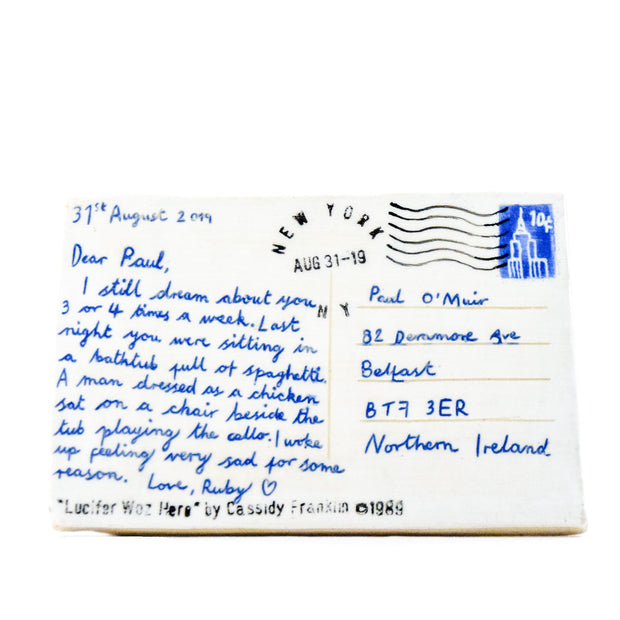 31st August 2019
NEW YORK
AUG 31-19
N Y
10¢
Dear Paul,
I still dream about you
3 or 4 times a week. Last
night you were sitting in
a bathtub full of spaghetti.
A man dressed as a chicken
sat on a chair beside the
tub playing the cello. I woke
up feeling very sad for some
reason. Love, Ruby ♡
Paul O'Muir
82 Deramore Ave
Belfast
BT7 3ER
Northern Ireland
"Lucifer Woz Here" by Cassidy Franklin ©1989